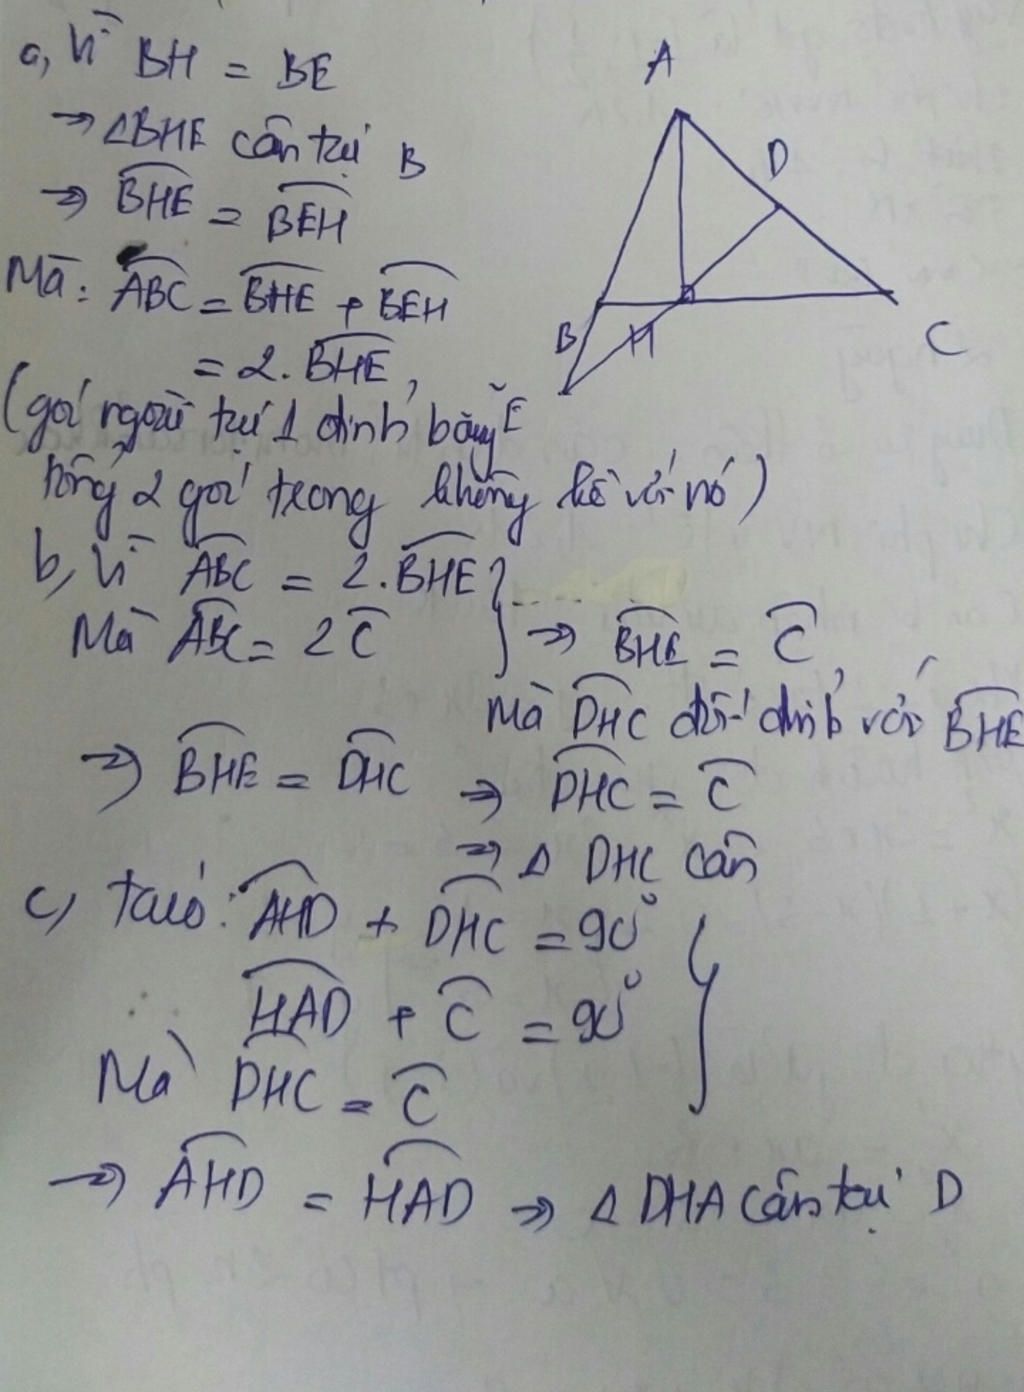 a, Vì BH = BE
→ ΔBHE cân tại B
→ BHE = BEH
Mà: ABC = BHE + BEH
= 2. BHE
(góc ngoài tại 1 đỉnh bằng
tổng 2 góc trong không kề với nó)
A
D
B
H
C
E
b, Vì ABC = 2. BHE
Mà ABC = 2 C
→ BHE = C
Mà DHC đối đỉnh với BHE
→ BHE = DHC → DHC = C
→ Δ DHC cân
c, Ta có: AHD + DHC = 90°
HAD + C = 90°
Mà DHC = C
→ AHD = HAD → Δ DHA cân tại D